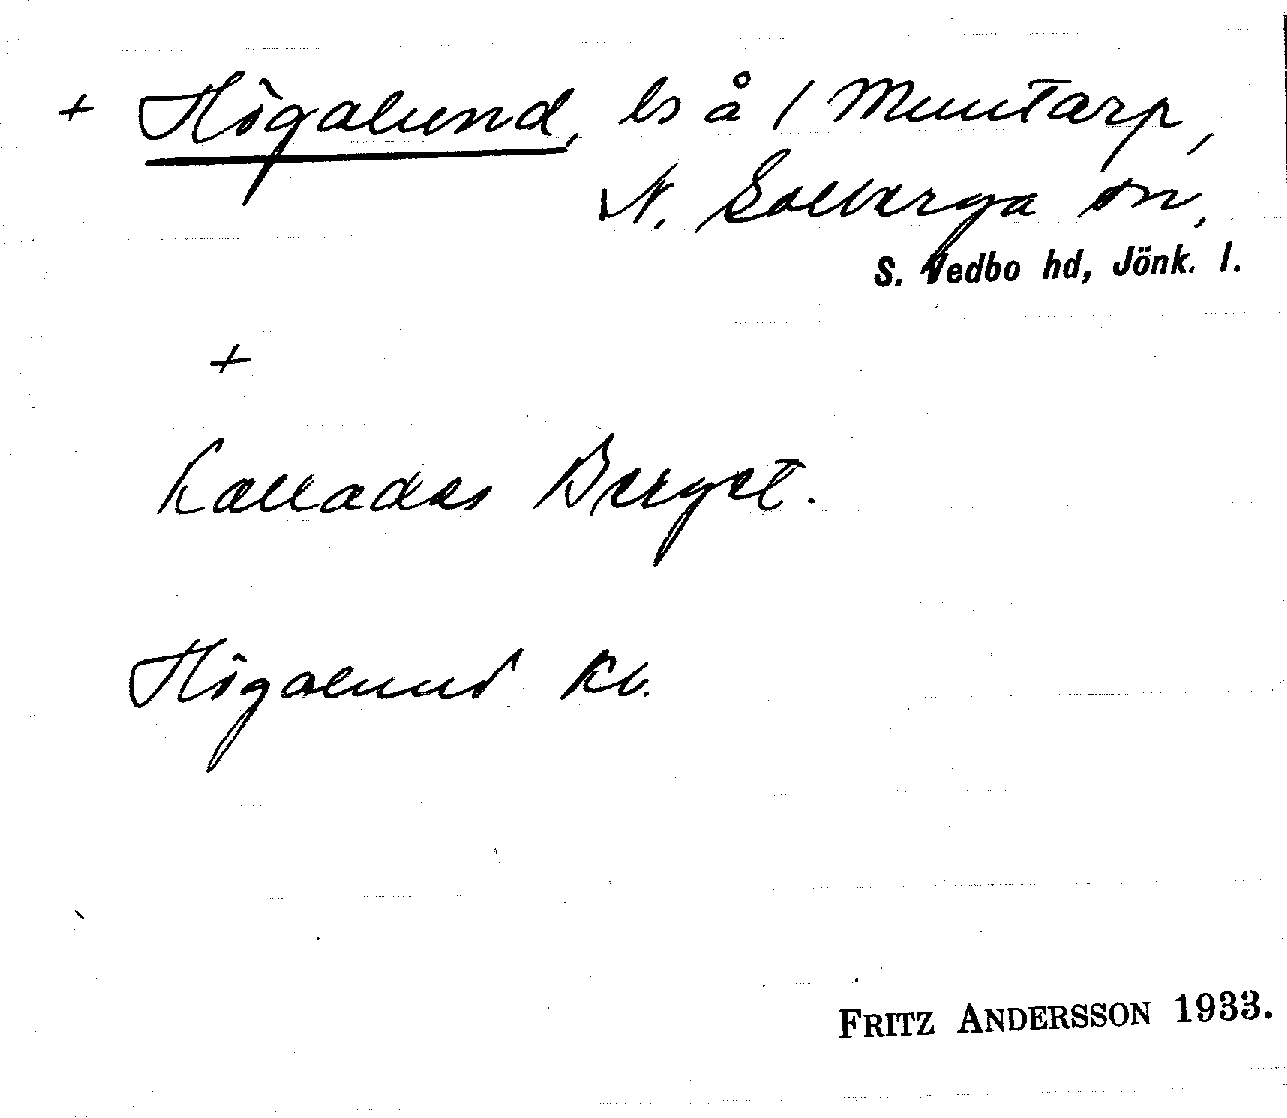 + Högalund, ls å 1 Muntarp,
N. Solberga sn,
S. Vedbo hd, Jönk. l.
+
Kallades Berget.
Högalund Kb.
FRITZ ANDERSSON 1933.